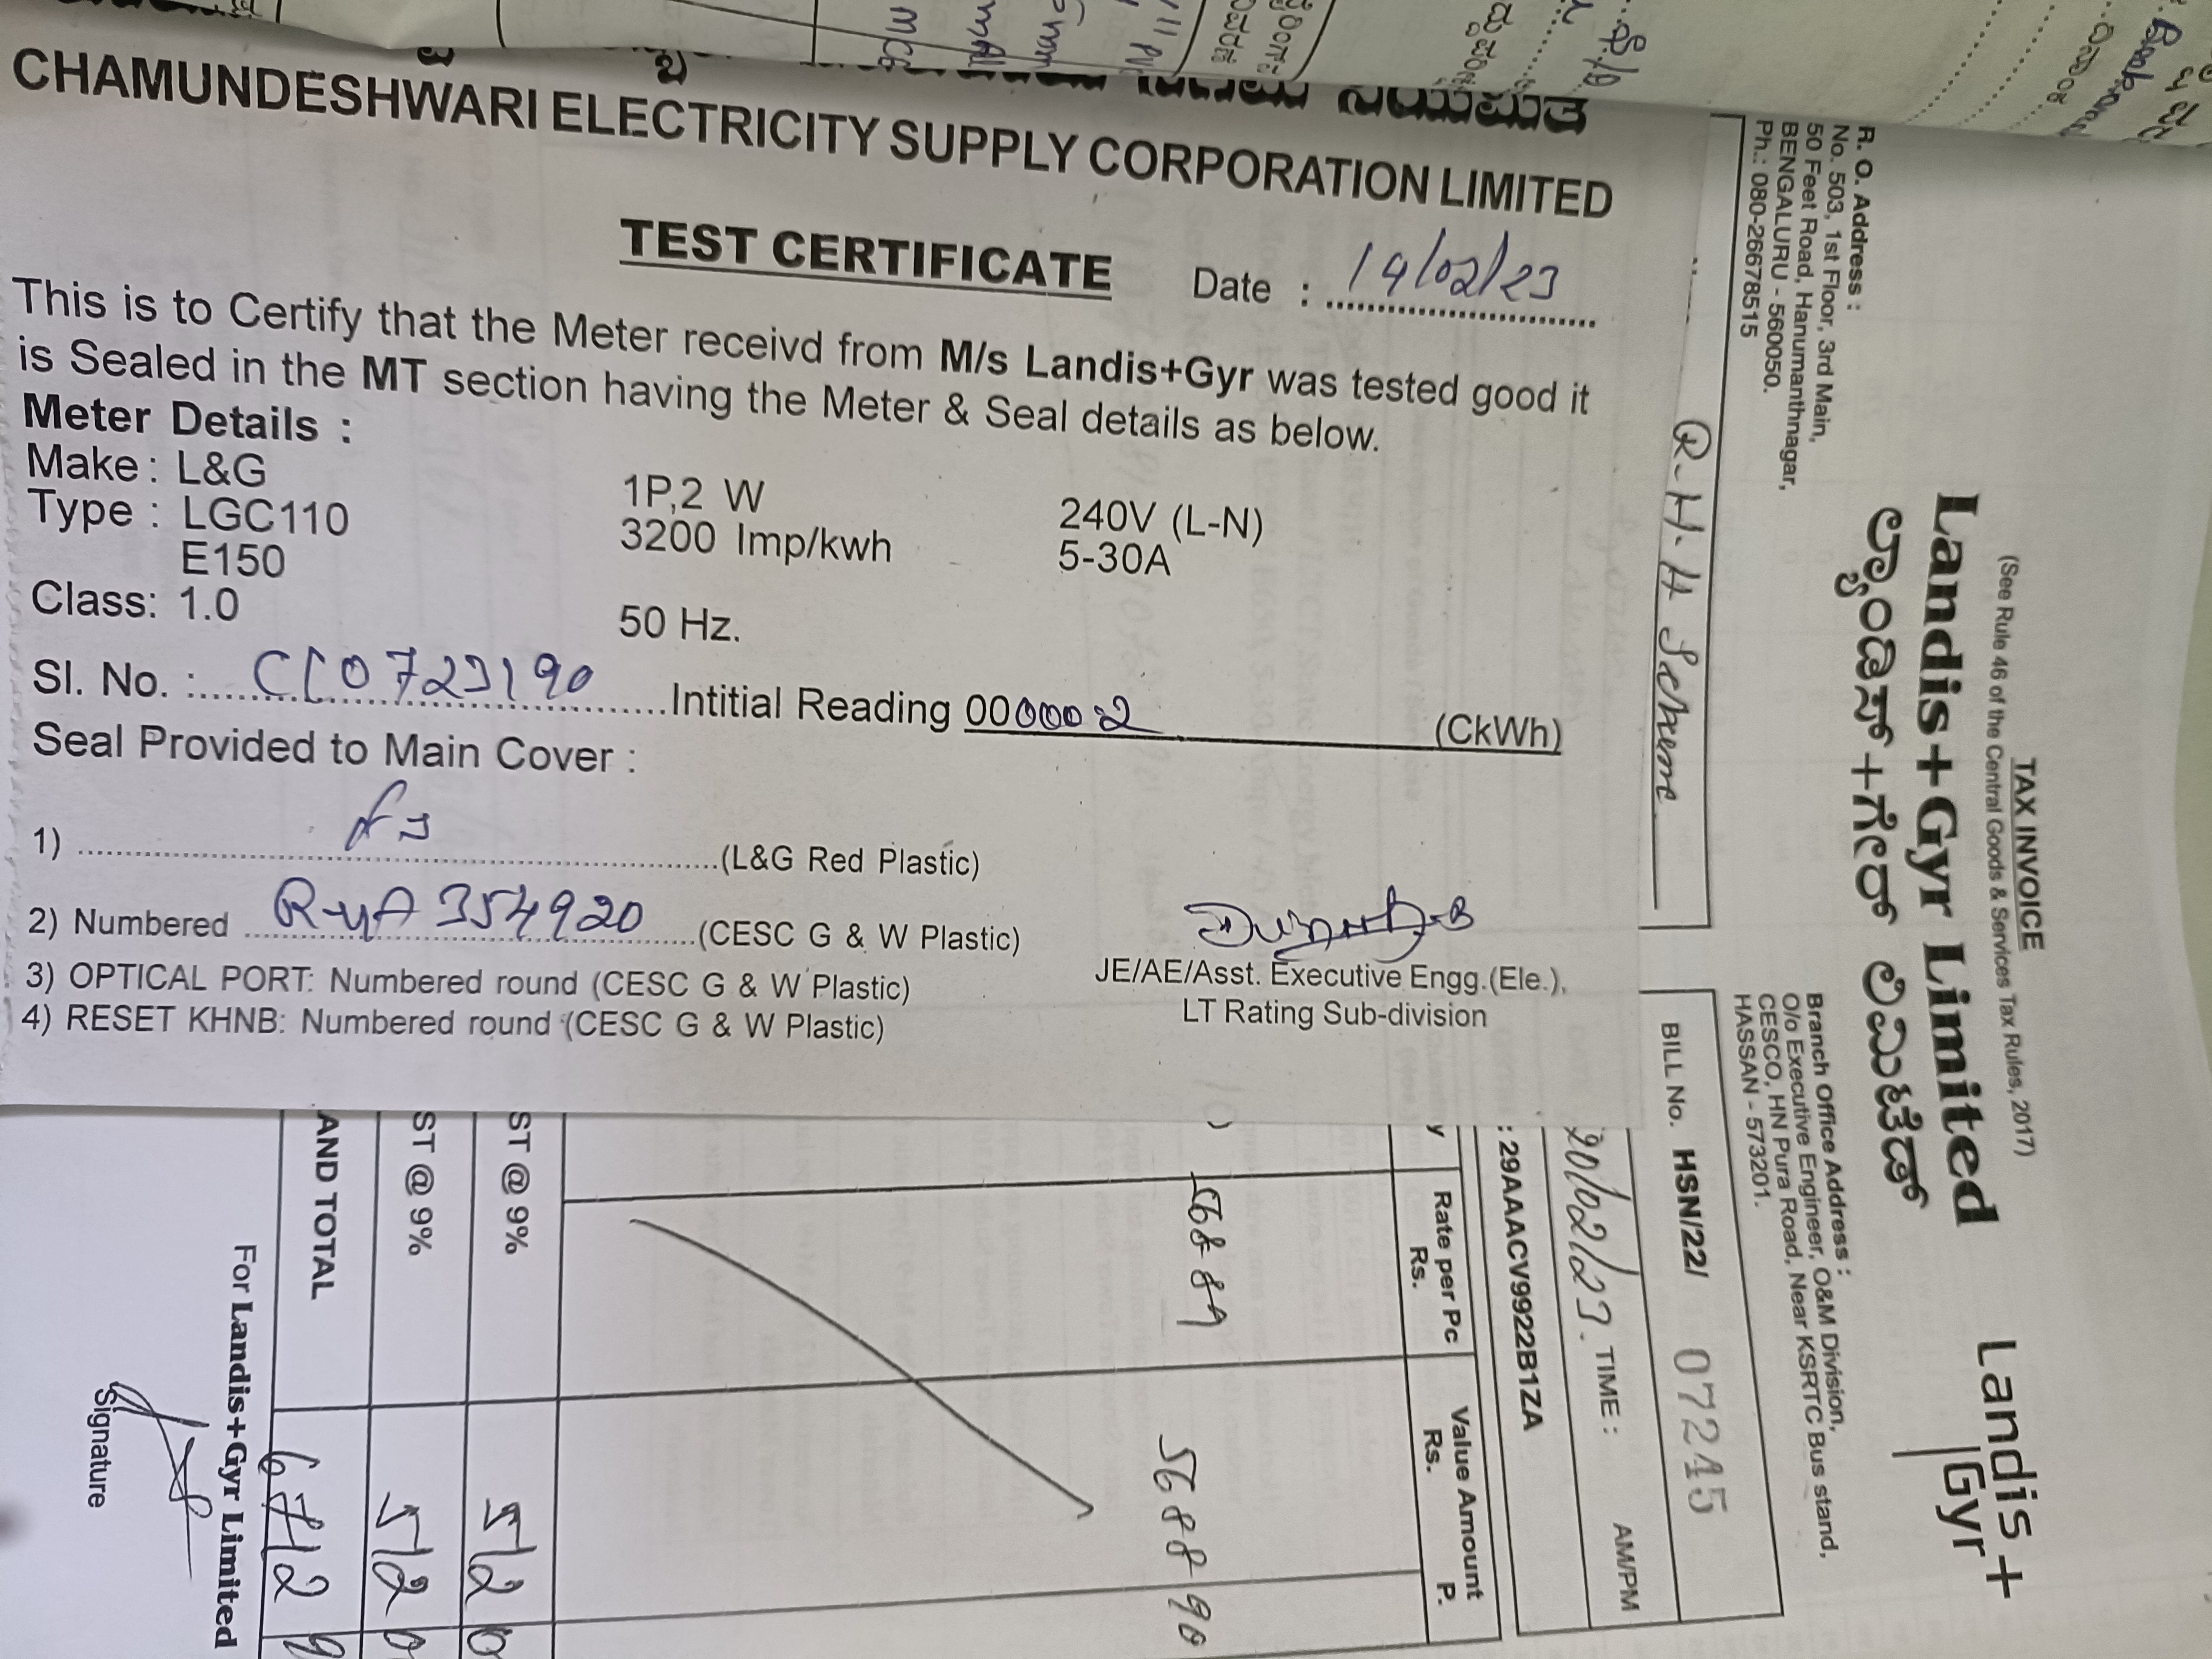 CHAMUNDESHWARI ELECTRICITY SUPPLY CORPORATION LIMITED
TEST CERTIFICATE
Date : 14/02/23
This is to Certify that the Meter receivd from M/s Landis+Gyr was tested good it
is Sealed in the MT section having the Meter & Seal details as below.
Meter Details :
Make : L&G 1P,2 W 240V (L-N)
Type : LGC110 3200 Imp/kwh 5-30A
E150
Class: 1.0 50 Hz.
Sl. No. : CC0723190 Intitial Reading 00000.2 (CkWh)
Seal Provided to Main Cover :
1) (L&G Red Plastic)
2) Numbered 354920 (CESC G & W Plastic)
3) OPTICAL PORT: Numbered round (CESC G & W Plastic)
4) RESET KHNB: Numbered round (CESC G & W Plastic)
JE/AE/Asst. Executive Engg.(Ele.),
LT Rating Sub-division
TAX INVOICE
(See Rule 46 of the Central Goods & Services Tax Rules, 2017)
Landis+Gyr Limited
ಲ್ಯಾಂಡಿಸ್+ಗೇರ್ ಲಿಮಿಟೆಡ್
Landis+
Gyr
R. O. Address :
No. 503, 1st Floor, 3rd Main,
50 Feet Road, Hanumanthnagar,
BENGALURU - 560050.
Ph.: 080-26678515
Branch Office Address :
O/o Executive Engineer, O&M Division,
CESCO, HN Pura Road, Near KSRTC Bus stand,
HASSAN - 573201.
R.H.H Scheme
BILL No. HSN/22/ 07245
20/02/23. TIME : AM/PM
: 29AAACV9922B1ZA
Rate per Pc Rs.
Value Amount
Rs. P.
568.89 5688 90
ST @ 9% 512 0
ST @ 9% 512 0
AND TOTAL 6712
For Landis+Gyr Limited
Signature